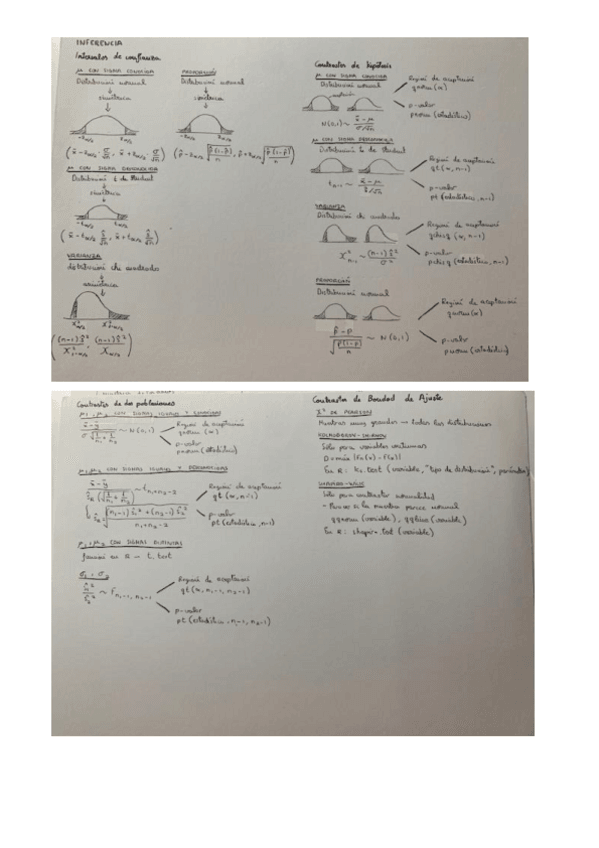 INFERENCIA
Intervalos de confianza
μ CON SIGMA CONOCIDA
Distribución normal
↓
simétrica
↓
-z α/2    z α/2
(x̄ - z α/2 · σ/√n , x̄ + z α/2 σ/√n)
PROPORCIÓN
Distribución normal
↓
simétrica
↓
-z α/2    z α/2
(p̂ - z α/2 √(p̂(1-p̂)/n) , p̂ + z α/2 √(p̂(1-p̂)/n))
μ CON SIGMA DESCONOCIDA
Distribución t de Student
↓
simétrica
↓
(x̄ - t α/2 ŝ/√n , x̄ + t α/2 ŝ/√n)
VARIANZA
distribución chi cuadrado
↓
asimétrica
Contrastes de hipótesis
μ CON SIGMA CONOCIDA
Distribución normal
N(0,1) ~ (x̄ - μ)/(σ/√n)
Región de aceptación
qnorm (α)
p-valor
pnorm (estadístico)
μ CON SIGMA DESCONOCIDA
Distribución t de Student
t n-1 ~ (x̄ - μ)/(ŝ/√n)
Región de aceptación
qt (α, n-1)
p-valor
pt (estadístico, n-1)
VARIANZA
Distribución chi cuadrado
X² n-1 ~ (n-1) ŝ²/σ²
Región de aceptación
qchisq (α, n-1)
p-valor
pchisq (estadístico, n-1)
PROPORCIÓN
Distribución normal
(p̂ - p)/√(p(1-p)/n) ~ N(0,1)
Región de aceptación
qnorm (α)
p-valor
pnorm (estadístico)
Contrastes de dos poblaciones
μ₁, μ₂ CON SIGMAS IGUALES Y CONOCIDAS
~ N(0,1)
Región de aceptación
qnorm (α)
p-valor
pnorm (estadístico)
μ₁, μ₂ CON SIGMAS IGUALES Y DESCONOCIDAS
~ t n₁+n₂-2
Región de aceptación
p-valor
pt (estadístico, n-1)
μ₁, μ₂ CON SIGMAS DISTINTAS
función en R → t.test
~ F n₁-1, n₂-1
Región de aceptación
qt (α, n₁-1, n₂-1)
p-valor
pt (estadístico, n₁-1, n₂-1)
Contrastes de Bondad de Ajuste
X² DE PEARSON
Muestras muy grandes → todas las distribuciones
Sólo para variables continuas
D = máx |Fn(x) - F(x)|
En R: ks.test (variable, "tipo de distribución", parámetros)
SHAPIRO-WILK
Sólo para contrastar normalidad
qqnorm (variable), qqline (variable)
En R: shapiro.test (variable)